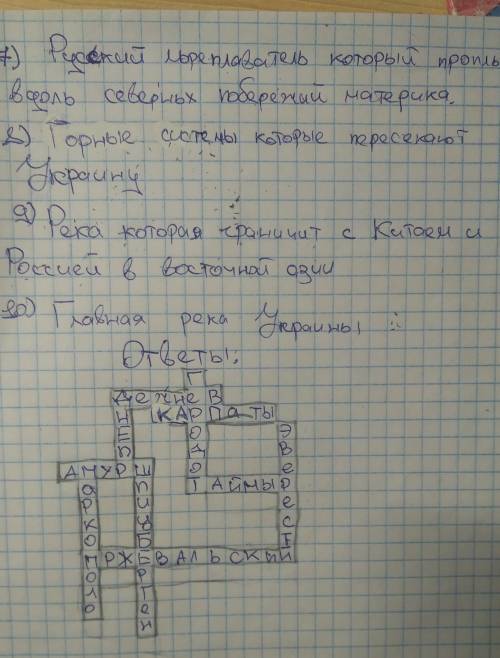 7) Русский мореплаватель который проплы
вдоль северных побережий материка.
8) Горные системы которые пересекают
Украину
9) Река которая граничит с Китаем и
Россией в восточной азии
10) Главная река Украины
Ответы:
Г
ДЕЖНЕВ
КАРПАТЫ
АМУР
ТАЙМЫР
ДНЕПР
ГЕРОДОТ
ЭВЕРЕСТ
МАРКОПОЛО
ШПИЦБЕРГЕН
ПРЖЕВАЛЬСКИЙ